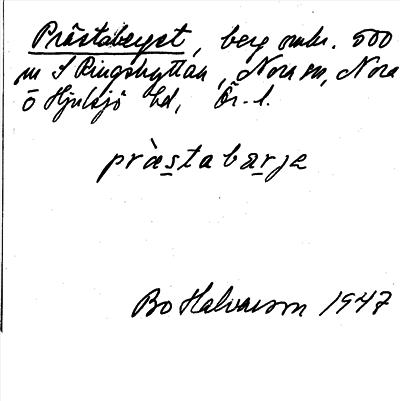 Prästaberget, berg omkr. 500
m S Ringshyttan, Nora sn, Nora
o Hjulsjö hd, Ör. l.
pràstabarje
Bo Halvarson 1947